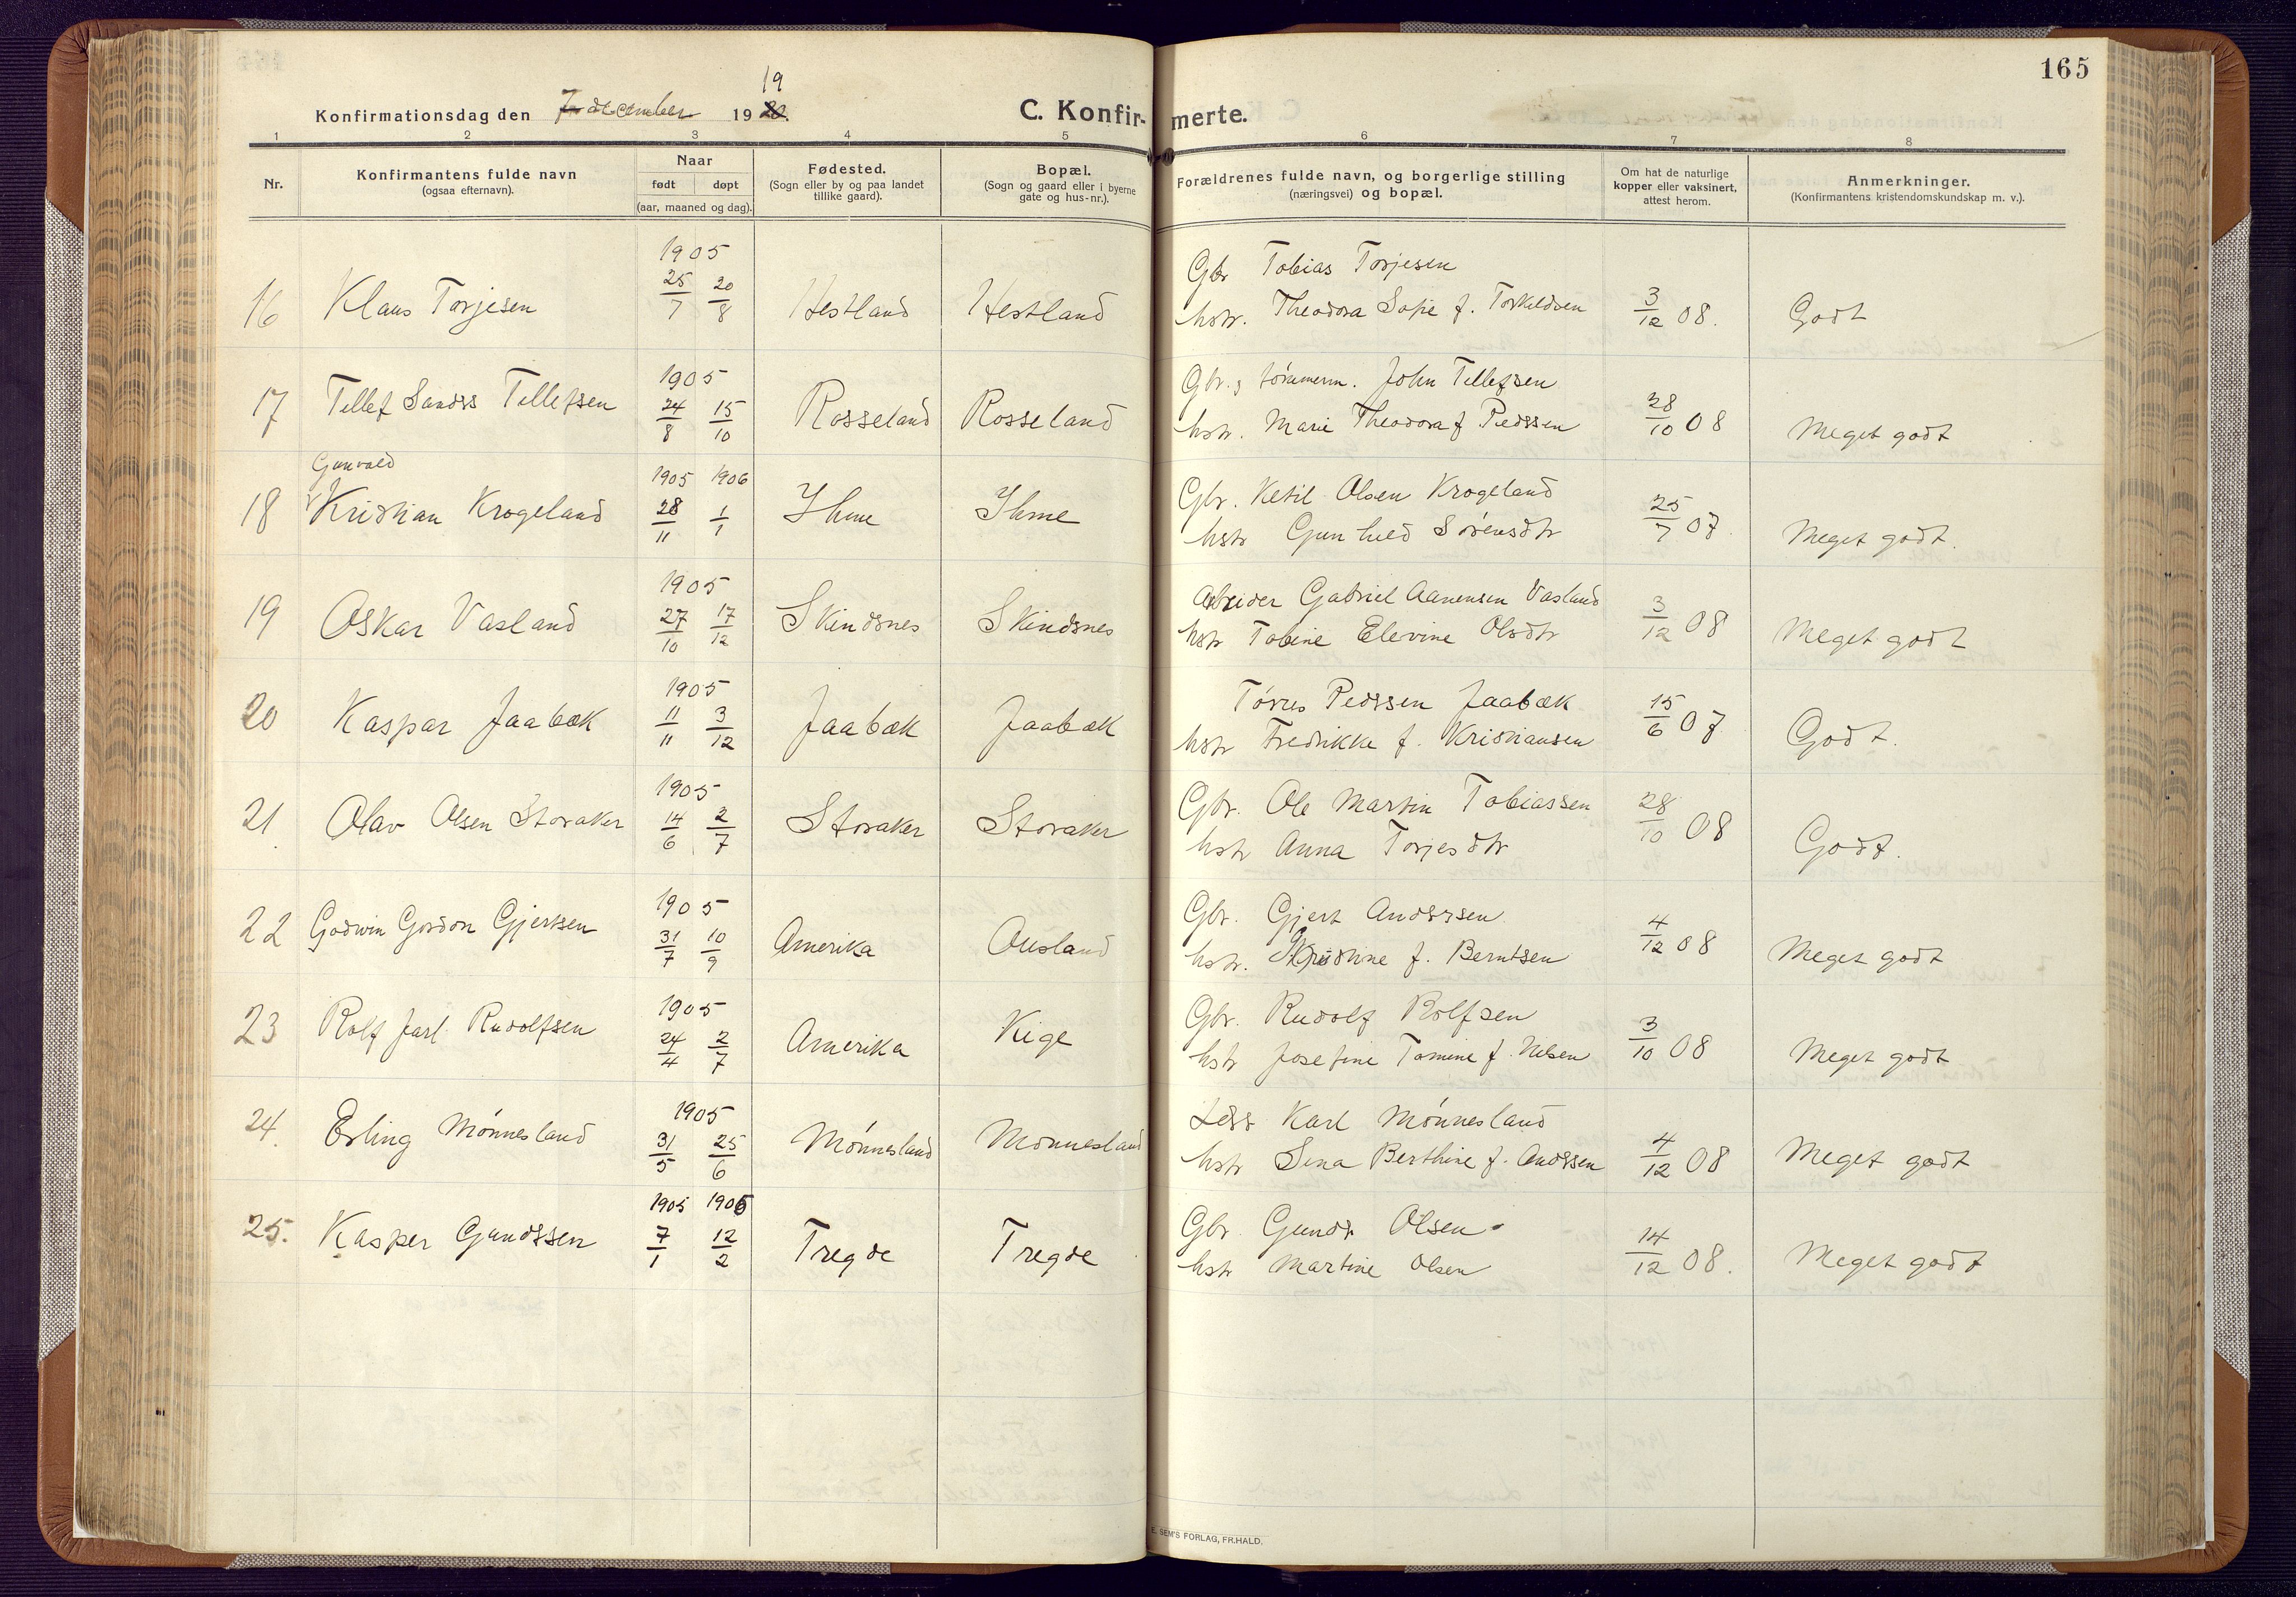 165
19
Konfirmationsdag den 7 december 1920. C. Konfirmerte.
1 2 3 4 5 6 7 8
Nr.
Konfirmantens fulde navn
(ogsaa efternavn).
Naar
født døpt
(aar, maaned og dag).
Fødested.
(Sogn eller by og paa landet
tillike gaard).
Bopæl.
(Sogn og gaard eller i byerne
gate og hus-nr.).
Forældrenes fulde navn, og borgerlige stilling
(næringsvei) og bopæl.
Om hat de naturlige
kopper eller vaksinert,
attest herom.
Anmerkninger.
(Konfirmantens kristendomskundskap m. v.).
1905
16 Klaus Torjesen 25/7 20/8 Hestland Hestland
Gbr Tobias Torjesen
hstr. Theodora Sofie f. Torkildsen 3/12 08. Godt
1905
17 Tellef Sandrs Tellefsen 24/8 15/10 Rosseland Rosseland
Gbr. & tømmerm. John Tellefsen
hstr. Marie Theodora f Pedrsen 28/10 08 Meget godt
Gunvald
1905 1906
18 Kristian Krogeland 28/11 1/1 Ihme Ihme
Gbr. Ketil Olsen Krogeland
hstr Gunhild Sørensdtr 25/7 07. Meget godt.
1905
19 Oskar Vasland 27/10 17/12 Skindsnes Skindsnes
Arbeider Gabriel Aanensen Vasland
hstr Tobine Elevine Olsdtr 3/12 08 Meget godt
1905
20 Kaspar Jaabæk 11/11 3/12 Jaabæk Jaabæk
Tørres Pedrsen Jaabæk
hstr Fredrikke f. Kristiansen 15/6 07 Godt.
1905
21. Olav Olsen Storaker 14/6 2/7 Storaker Storaker
Gbr. Ole Martin Tobiassen
hstr Anna Torjesdtr 28/10 08 Godt.
1905
22 Godwin Gordon Gjertsen 31/7 10/9 Amerika Ousland
Gbr. Gjert Andrsen
hstr. f. Berntsen 4/12 08 Meget godt
1905
23 Rolf Jarl Rudolfsen 24/4 2/7 Amerika Kige
Gbr. Rudolf Rolfsen
hstr Josefine Tomine f. Nilsen 3/10 08 Meget godt
1905
24. Erling Mønnesland 31/5 25/6 Mønnesland Mønnesland
Karl Mønnesland
hstr Sina Berthine f. Andrsen 4/12 08 Meget godt
1905 1905
25. Kasper Gundrsen 7/1 12/2 Tregde Tregde
Gbr. Gundr Olsen
hstr Martine Olsen 14/12 08. Meget godt
E. SEM'S FORLAG, FR.HALD.